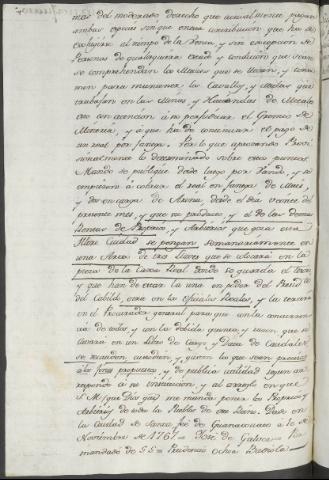 mas del moderado derecho que actualmente pagan
ambas especies sin que en esta contribucion que ha de
exigirse al tiempo de la Venta, y sin excepcion de
Personas de qualesquiera estado y condicion que sean
se comprehendan los Maices que se llevan, y consu
men para mantener la Cavally, y mulas que
trabajan en las Minas y Haciendas de Metales
en atencion a no perjudicar el Gremio de
Mineria, y a que ha de continuar el pago de
un real por fanega. Por lo que aprovando Provi
sionalmente lo determinado sobre estos puntos
Mando se publique desde luego por Vando, y se
empiece a cobrar el real en fanega de Mais,
y dos en carga de Arina, desde el dia veinte del
presente mes, y que su producto, y el de las demas
Rentas de Propios, y Arbitrios que goza esta
Ilustre Ciudad se pongan semanariamente en
una Arca de tres llaves que se colocará en la
pieza de la Caxa Real donde se guarda el Tesoro
y que han de estar la una en poder del
del Cabildo, otra en los Oficiales Reales, y la tercera
en el Procurador general para que con la concurrencia
de todos, y con la debida quenta, y razon que se
llevará en un Libro de Cargo, y Data de Caudales
se recauden, custodien, y gasten los que sean precisos
a los fines propuestos, y de publica utilidad segun co
rresponde a su institucion, y al arreglo en que
S. M. (que Dios gûe) me manda poner los Propios, y
Arbitrios de todos los Pueblos de este Reino. Dado en
la Ciudad de Santa Fée de Guanaxuato a 10 de
Noviembre de 1767 = Josè de Galvez = Por
mandado de S. S. = Prudencio Ochoa Barcola